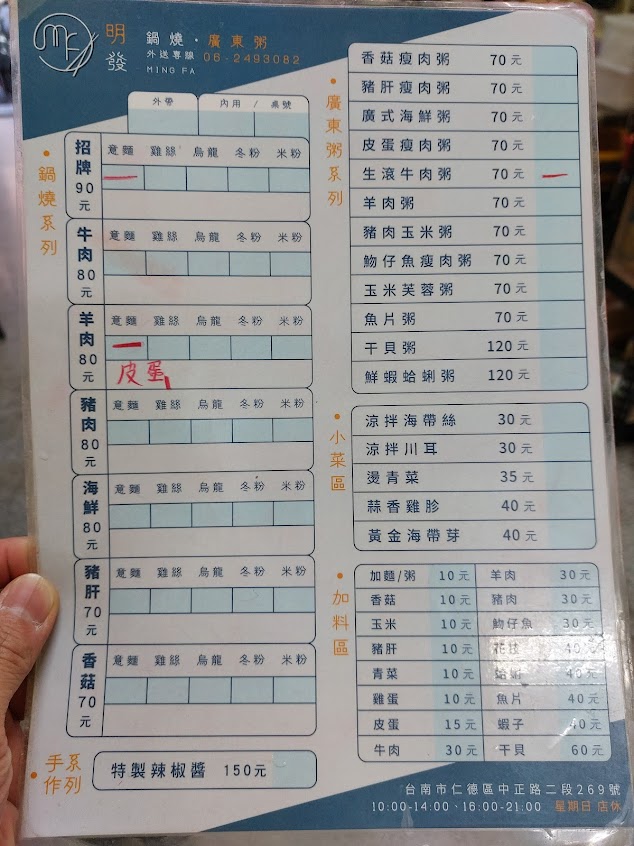 MF
明發
鍋燒・廣東粥
外送專線 06-2493082
MING FA
外帶 內用 / 桌號
・鍋燒系列
招牌 90元
意麵 雞絲 烏龍 冬粉 米粉
牛肉 80元
意麵 雞絲 烏龍 冬粉 米粉
羊肉 80元
意麵 雞絲 烏龍 冬粉 米粉
皮蛋1
豬肉 80元
意麵 雞絲 烏龍 冬粉 米粉
海鮮 80元
意麵 雞絲 烏龍 冬粉 米粉
豬肝 70元
意麵 雞絲 烏龍 冬粉 米粉
香菇 70元
意麵 雞絲 烏龍 冬粉 米粉
・手作系列
特製辣椒醬 150元
・廣東粥系列
香菇瘦肉粥 70元
豬肝瘦肉粥 70元
廣式海鮮粥 70元
皮蛋瘦肉粥 70元
生滾牛肉粥 70元
羊肉粥 70元
豬肉玉米粥 70元
魩仔魚瘦肉粥 70元
玉米芙蓉粥 70元
魚片粥 70元
干貝粥 120元
鮮蝦蛤蜊粥 120元
・小菜區
涼拌海帶絲 30元
涼拌川耳 30元
燙青菜 35元
蒜香雞胗 40元
黃金海帶芽 40元
・加料區
加麵/粥 10元 羊肉 30元
香菇 10元 豬肉 30元
玉米 10元 魩仔魚 30元
豬肝 10元 花枝 40元
青菜 10元 蛤蜊 40元
雞蛋 10元 魚片 40元
皮蛋 15元 蝦子 40元
牛肉 30元 干貝 60元
台南市仁德區中正路二段269號
10:00-14:00、16:00-21:00 星期日 店休